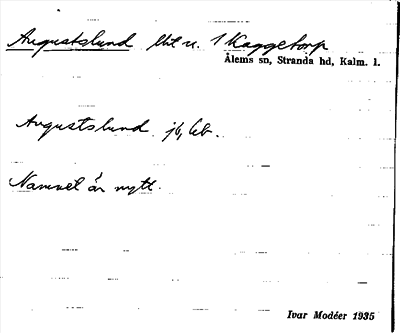 Augustslund lht u. 1 Kaggetorp
Ålems sn, Stranda hd, Kalm. l.
Augustslund jb, kb.
Namnet är nytt.
Ivar Modéer 1935